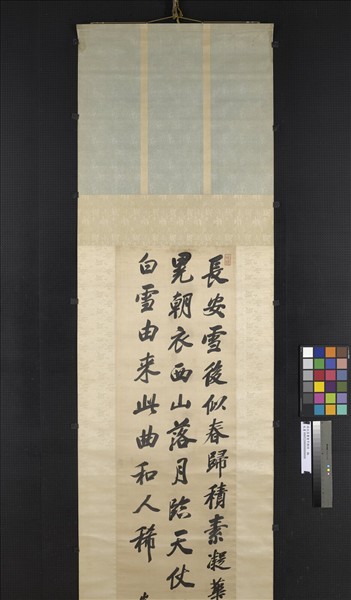 長安雪後似春歸積素凝華
晃朝衣西山落月臨天仗
白雪由来此曲和人稀